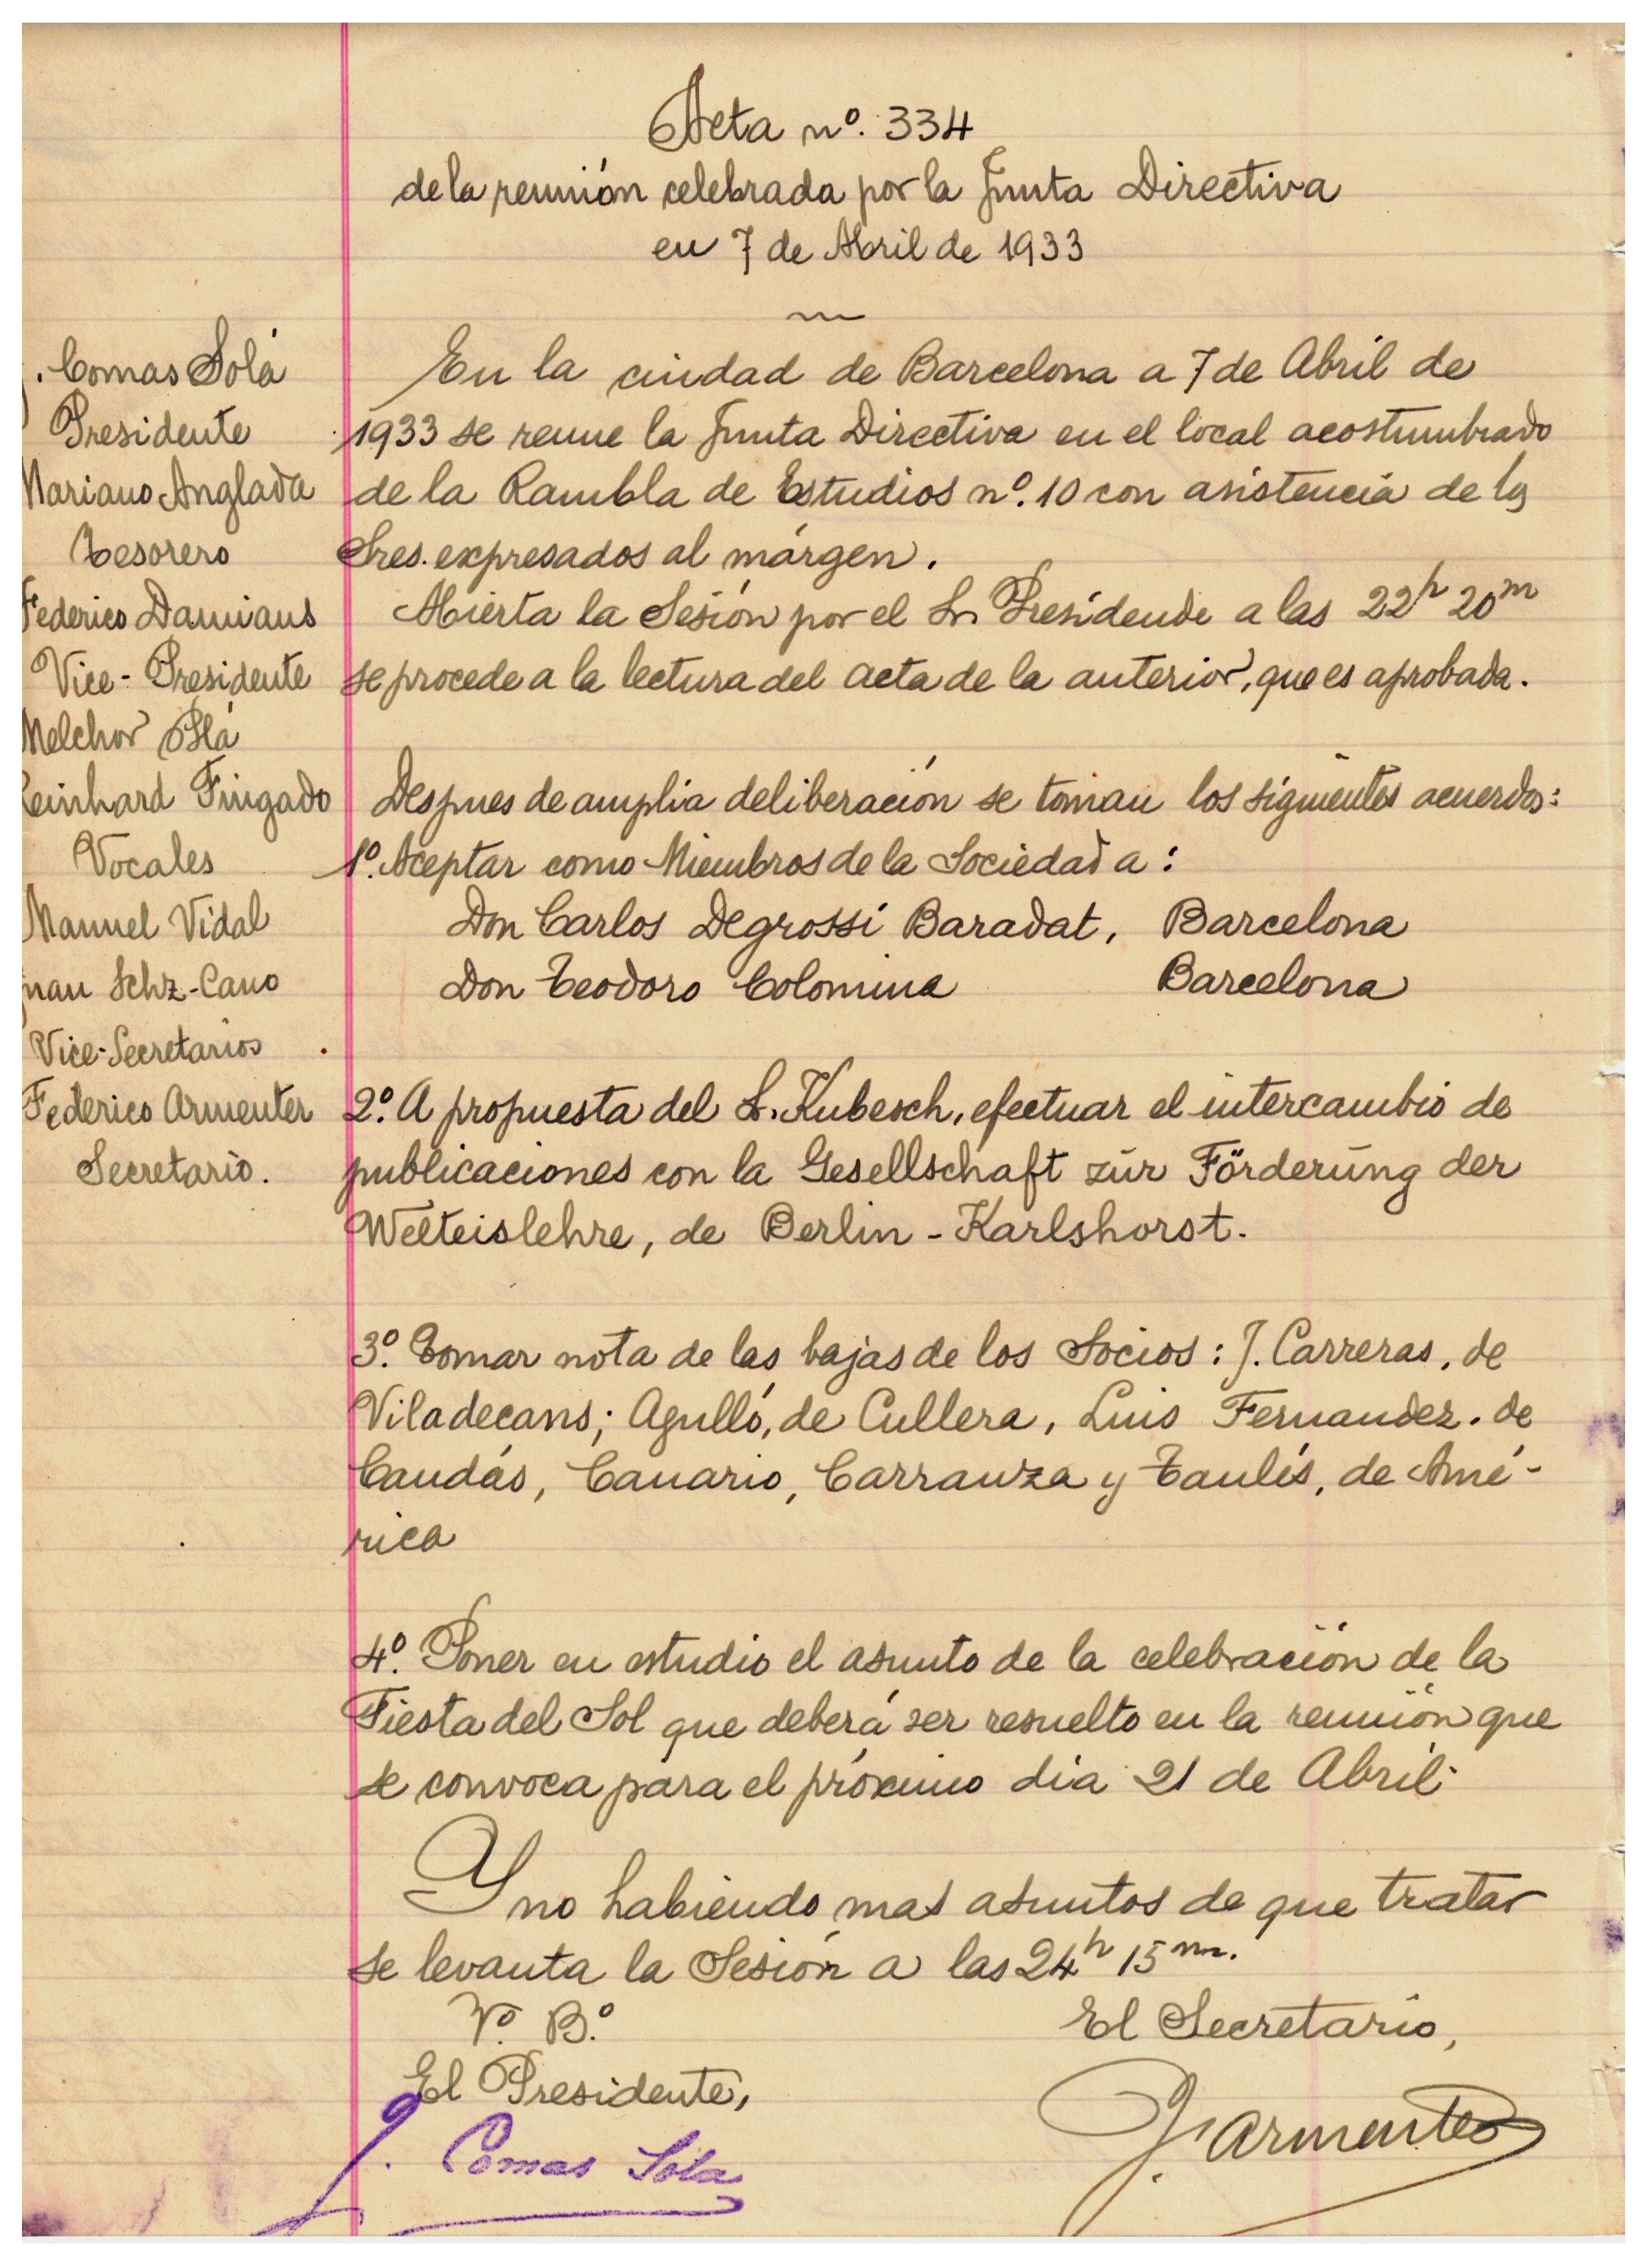 Acta nº. 334
de la reunión celebrada por la Junta Directiva
en 7 de Abril de 1933
. Comas Solá
Presidente
Mariano Anglada
Tesorero
Federico Damians
Vice-Presidente
Melchor Plá
Reinhard Fingado
Vocales
Manuel Vidal
Juan Schz-Cano
Vice-Secretarios
Federico Armenter
Secretario.
En la ciudad de Barcelona a 7 de Abril de
1933 se reune la Junta Directiva en el local acostumbrado
de la Rambla de Estudios nº. 10 con asistencia de los
Sres. expresados al márgen.
Abierta la Sesión por el Sr. Presidende a las 22h 20m
se procede a la lectura del acta de la anterior, que es aprobada.
Despues de amplia deliberación se toman los siguientes acuerdos:
1º. Aceptar como Miembros de la Sociedad a:
Don Carlos Degrossi Baradat, Barcelona
Don Teodoro Colomina Barcelona
2º. A propuesta del S. Kubesch, efectuar el intercambio de
publicaciones con la Gesellschaft zur Förderung der
Welteislehre, de Berlin-Karlshorst.
3º. Tomar nota de las bajas de los Socios: J. Carreras, de
Viladecans; Agulló, de Cullera, Luis Fernandez. de
Caudás, Canario, Carranza y Taulés, de Amé-
rica
4º. Poner en estudio el asunto de la celebración de la
Fiesta del Sol que deberá ser resuelto en la reunión que
se convoca para el próximo dia 21 de Abril.
Y no habiendo mas asuntos de que tratar
se levanta la Sesión a las 24h 15m.
Vº. Bº.
El Presidente,
J. Comas Solá
El Secretario,
F. Armenter